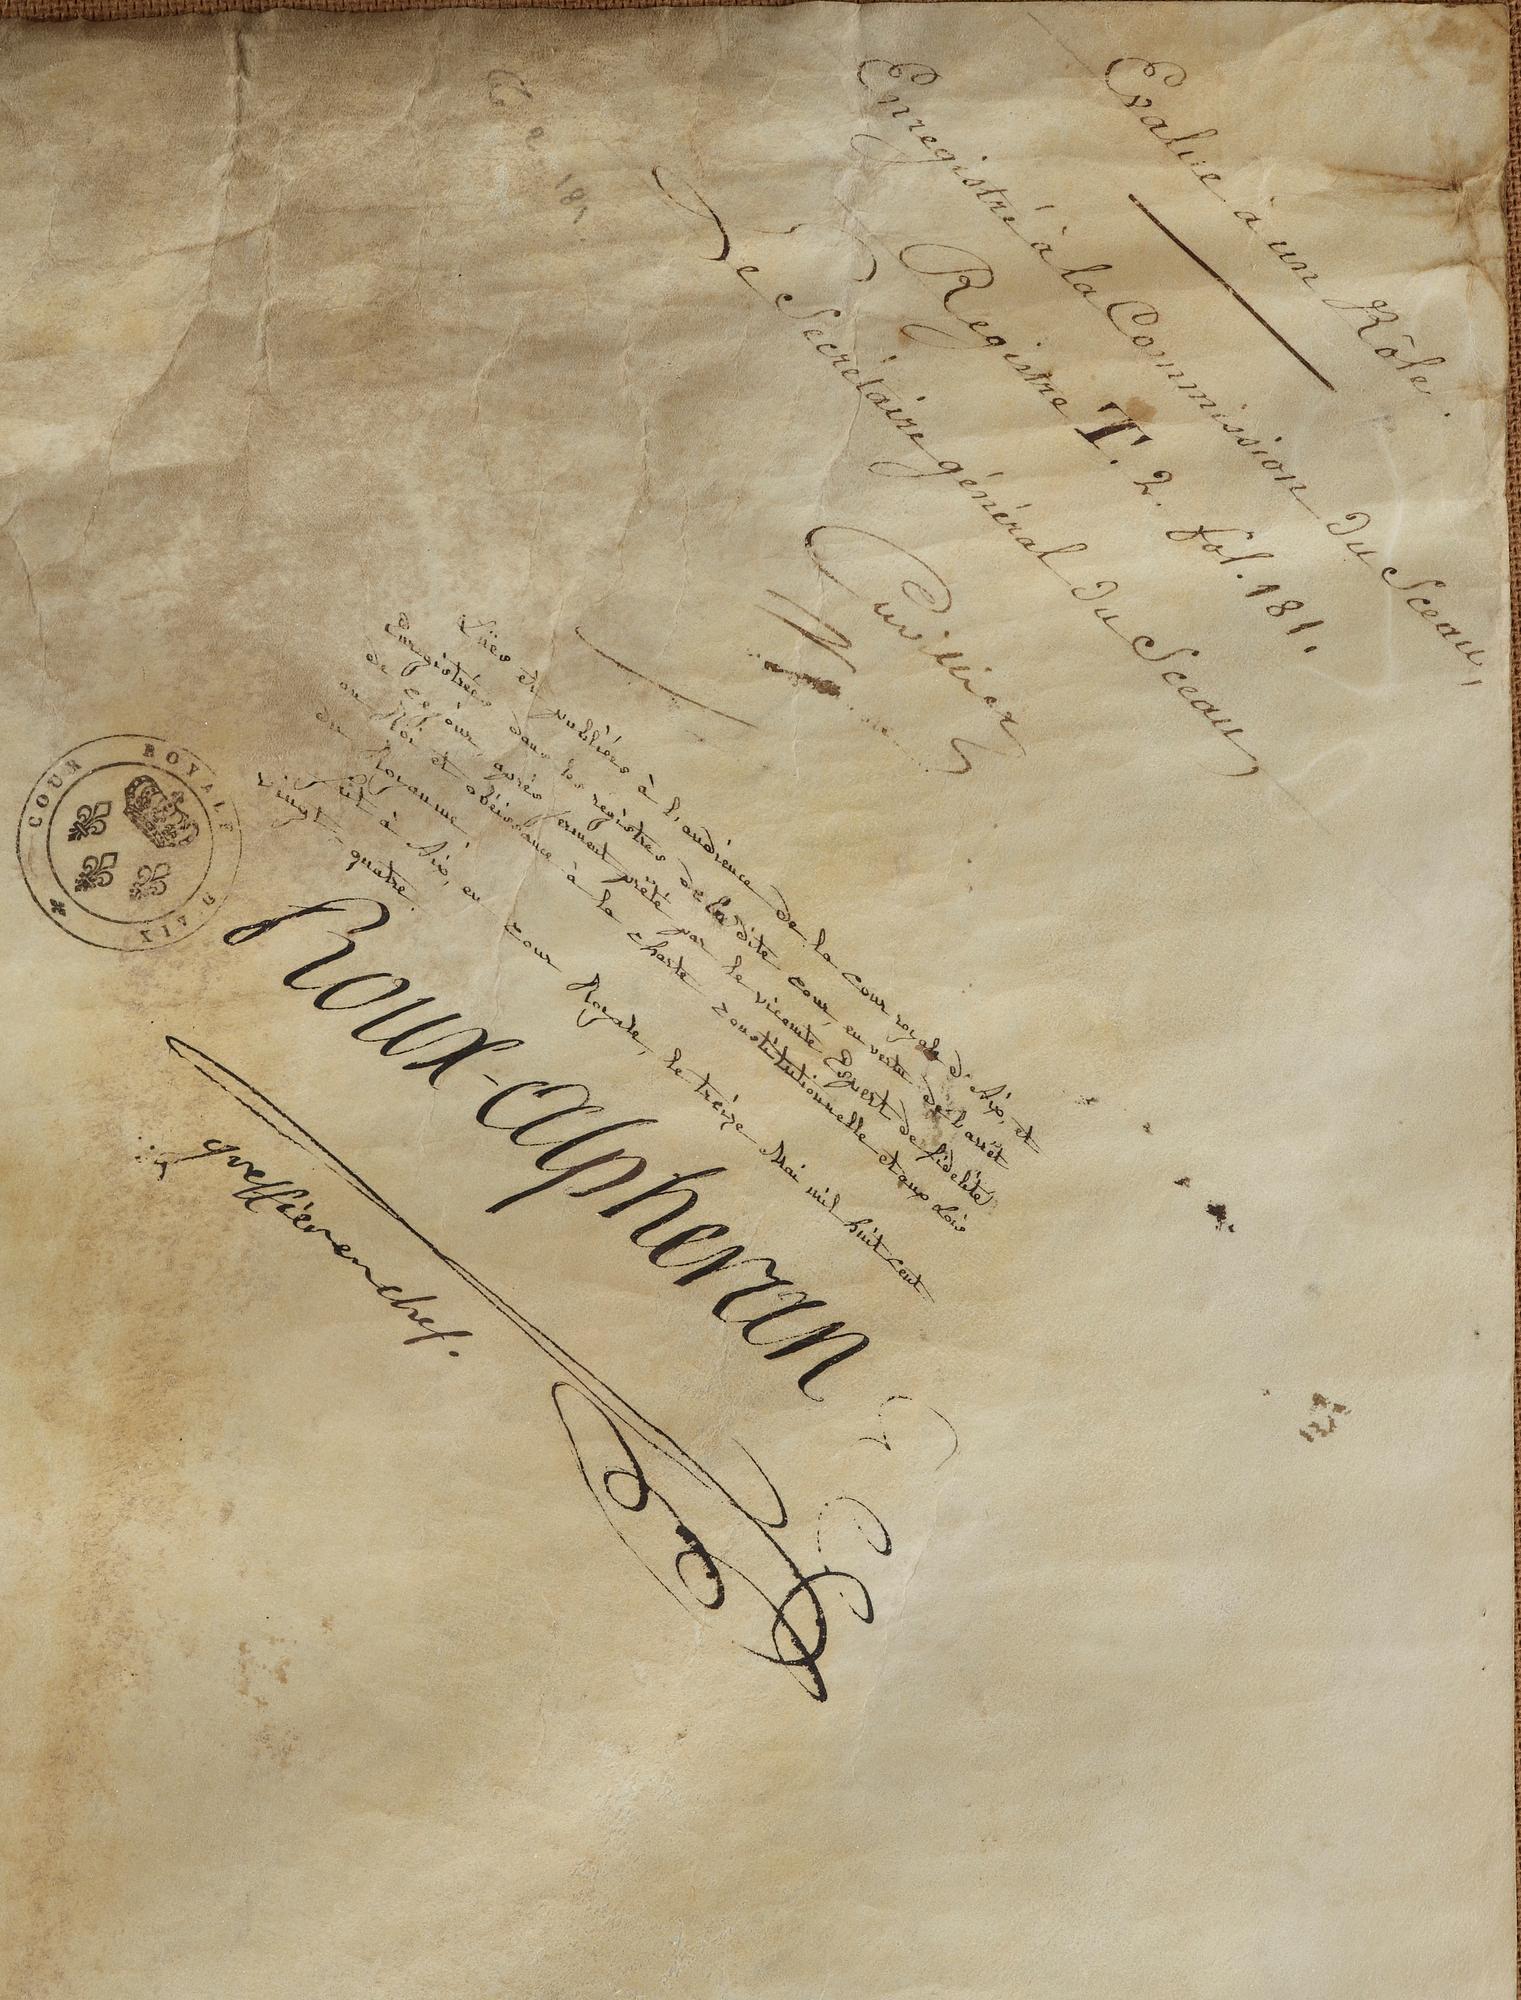 Evalué à un Rôle.
Enregistré à la Commission du Sceau,
Registre T. 2. fol. 181.
Le Secrétaire général du Sceau
Cuvillier
Lües et publiées à l'audience de la cour royale d'Aix, et
Enregistrées dans les registres de la dite cour, en vertu de l'arrêt
de ce jour, après serment prêté par le vicomte Espert de fidélité
au Roi et obéissance à la charte constitutionnelle et aux Lois
du Royaume.
fait à Aix, en cour Royale, le treize Mai mil huit cent
vingt quatre.
COUR ROYALE D'AIX
Roux-Alpheran
greffier en chef.